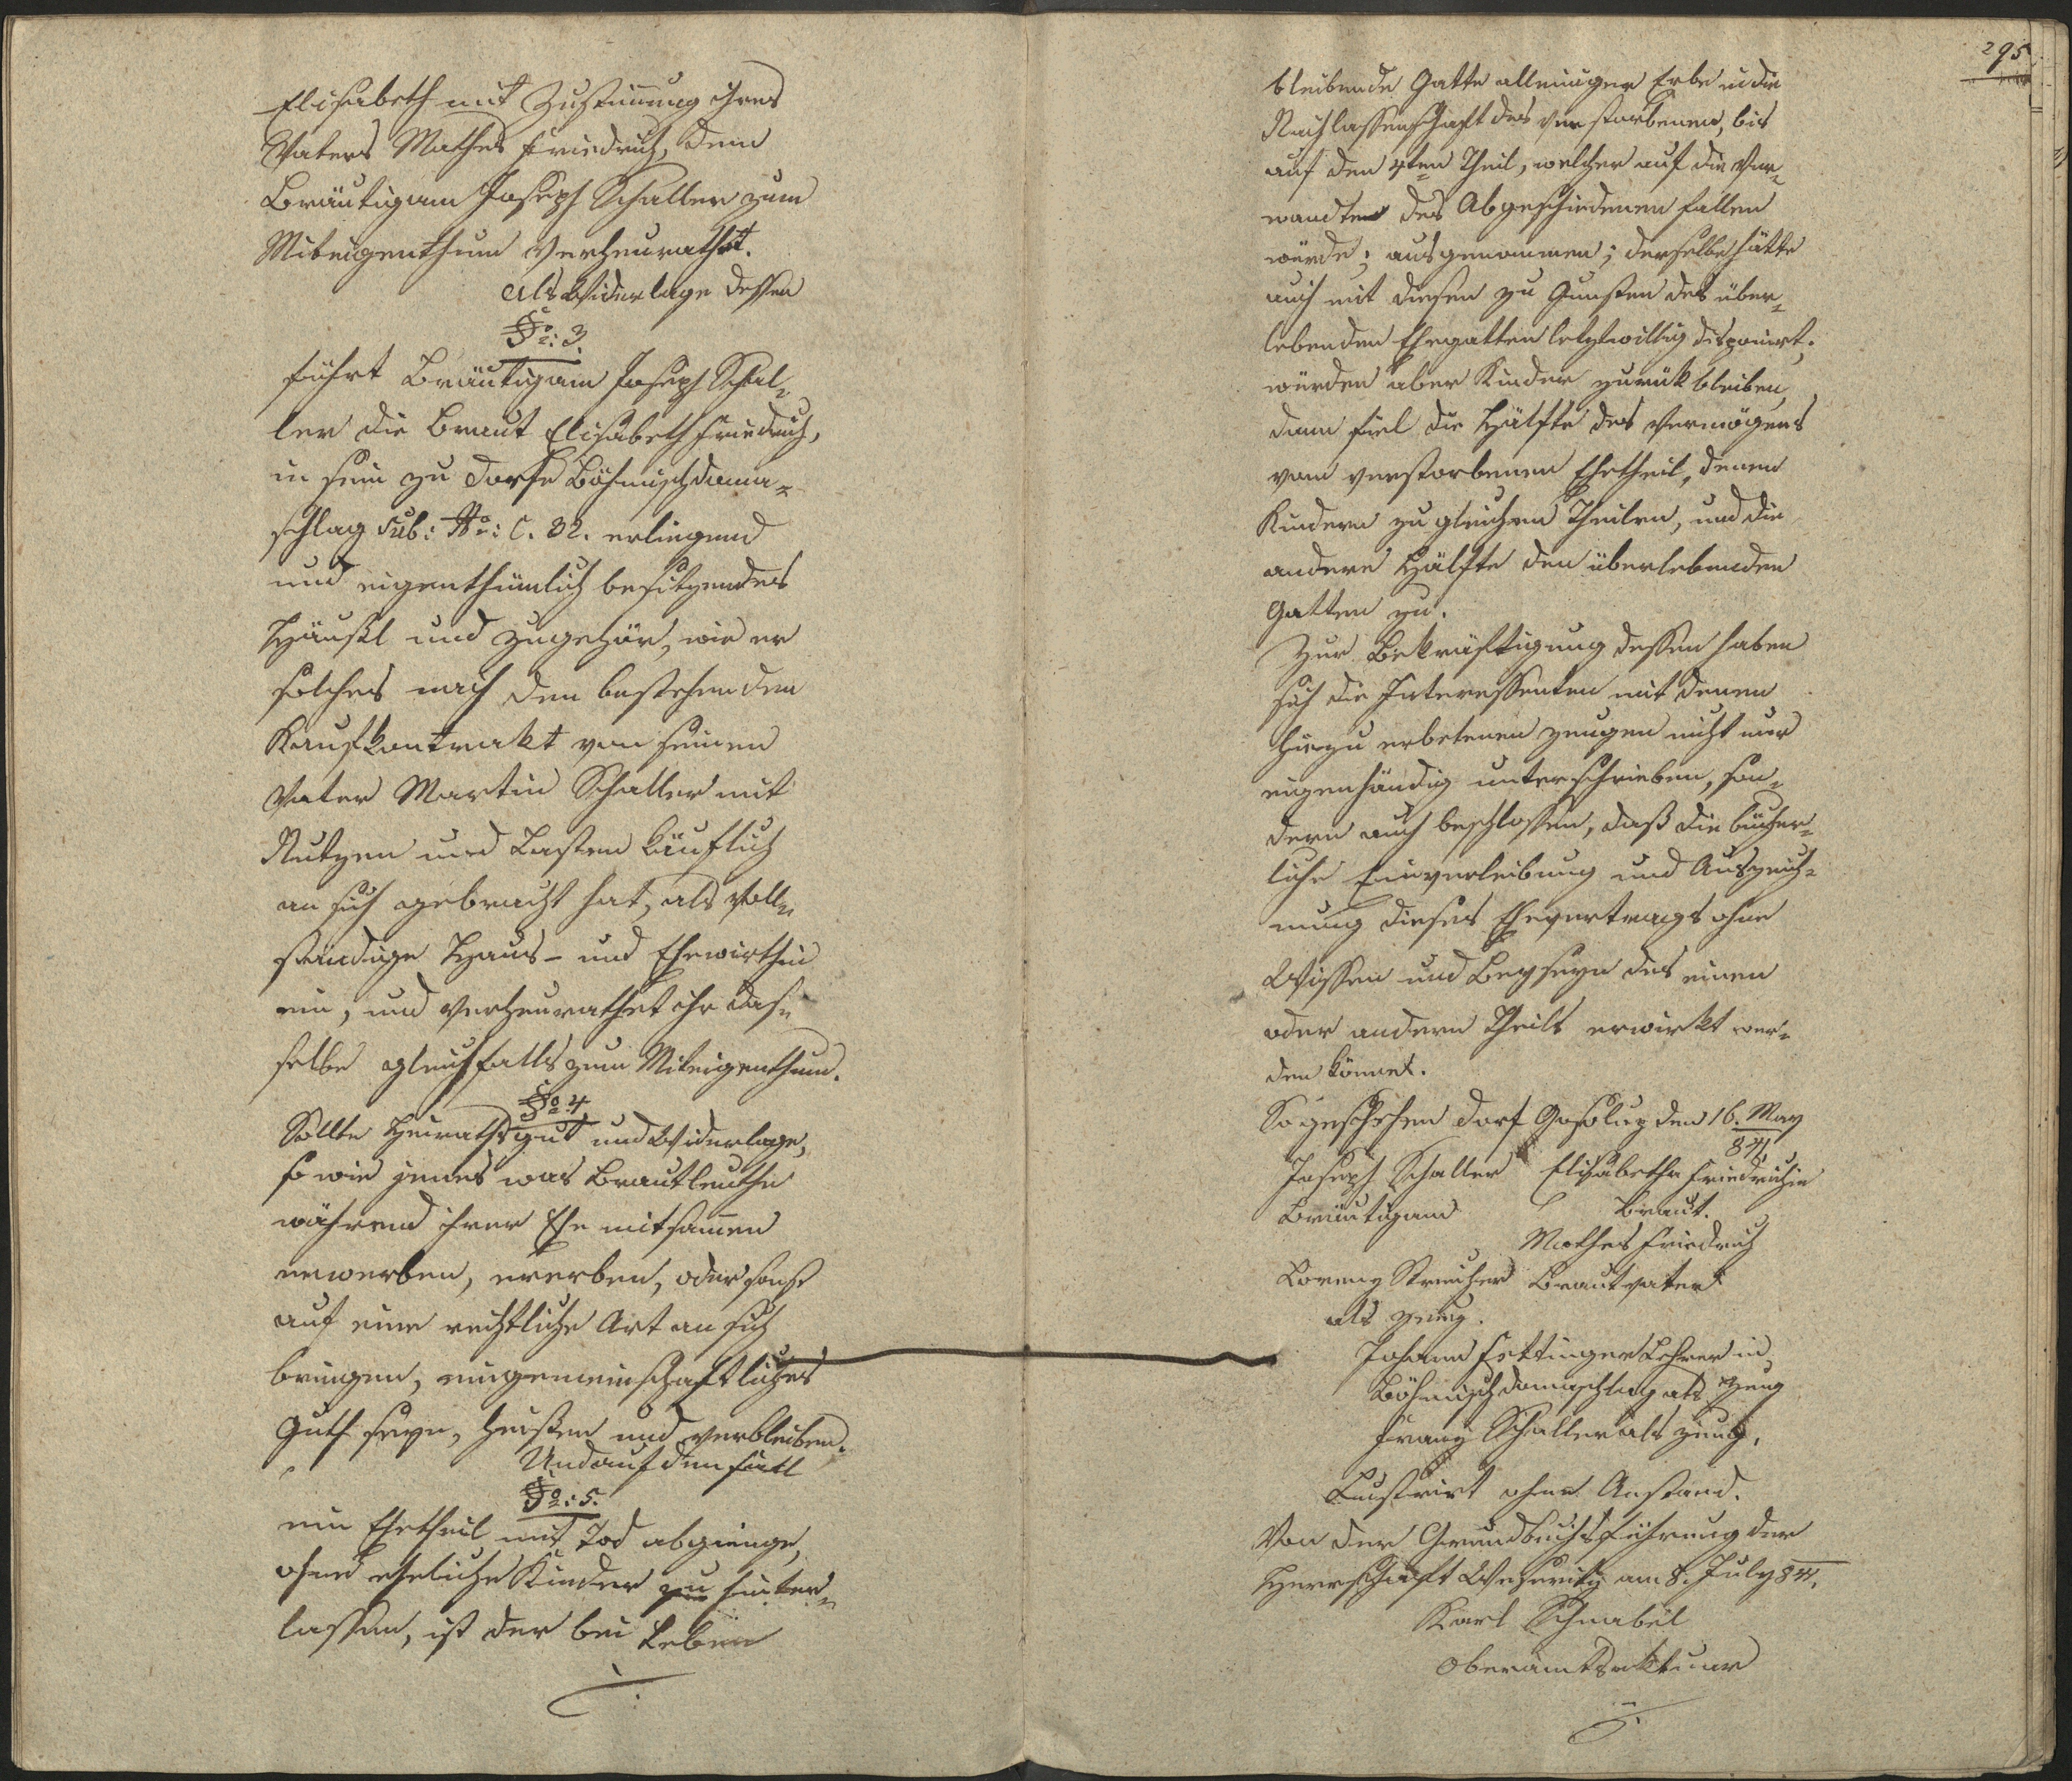 Elisabeth mit Zustimung ihres
Vaters Mathes Friedrich, dem
Bräutigam Joseph Schaller zum
Miteigenthum verheurathet.
Als Widerlage dessen
§o: 3.
führt Bräutigam Joseph Schal-
ler die Braut Elisabeth Friedrich,
in sein zu Dorfe Böhmischdoma-
schlag sub: No: C. 32. erliegend
und eigenthümlich besitzendes
Häußl und Zugehör, wie er
solches nach den bestehenden
Kaufkontrakt von seinem
Vater Martin Schaller mit
Nutzen und Lasten käuflich
an sich gebracht hat, als voll-
ständige Haus- und Ehewirthin
ein, und verheurathet ihr das-
selbe gleichfalls zum Miteigenthum.
§o 4
Sollte Heirathsgut und Widerlage,
so wie jenes was Brautleuthe
während ihrer Ehe mitsamen
erwerben, ererben, oder sonst
auf eine rechtliche Art an sich
bringen, ein gemeinschaftliches
Guth seyn, heißen und verbleiben.
Und auf den Fall
§o: 5.
ein Ehetheil mit Tod abgienge,
ohne eheliche Kinder zu hinter-
lassen, ist der bei Leben
./.
295
bleibende Gatte alleiniger Erbe in die
Nachlassenschaft des verstorbenen, bis
auf den 4ten Theil, welcher auf die Ver-
wandten des Abgeschiedenen fallen
würde; ausgenommen; derselbe hätte
auch mit diesen zu Gunsten des über-
lebenden Ehegatten letztwillig disponirt;
würden aber Kinder zurükbleiben,
dann fiel die Hälfte des Vermögens
vom verstorbenen Ehetheil, denen
Kindern zu gleichen Theilen, und die
andere Hälfte den überlebenden
Gatten zu.
Zur Bekräftigung dessen haben
sich die Interessenten mit denen
hiezu erbetenen Zeugen nicht nur
eigenhändig unterschrieben, son-
dern auch beschlossen, daß die bücher-
liche Einverleibung und Auszeich-
nung dieses Ehevertrags ohne
Wissen und Beyseyn des einen
oder andern Theils erwirkt wer-
den könnet.
So geschehen Dorf den 16. May
841
Joseph Schaller Elisabetha Friedrichin
Bräutigam Braut.
Mathes Friedrich
Lorenz Streicher Brautvater
als Zeug.
Johann Fettinger Lehrer in
Böhmischdomaschlag als Zeug
Franz Schaller als Zeug.
Lustrirt ohne Anstand.
Von der Grundbuchsführung der
Herrschaft Weseritz am 8. July 841.
Karl Schnabel
Oberamtsaktuar
./.